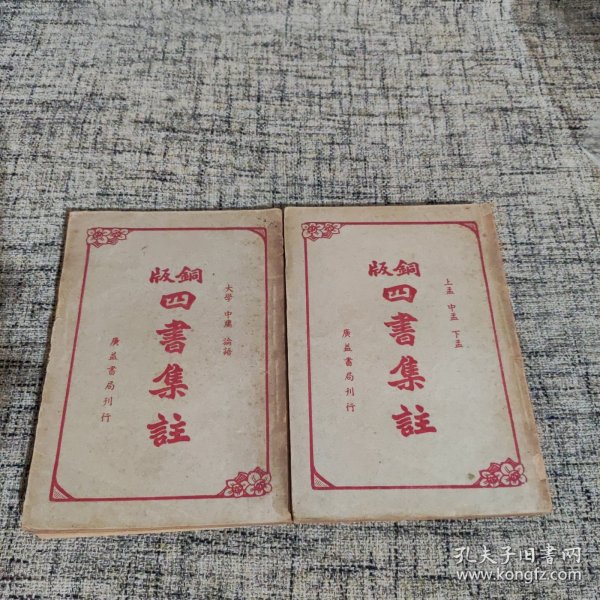 大學 中庸 論語
銅版
四書集註
廣益書局刊行
上孟 中孟 下孟
銅版
四書集註
廣益書局刊行
孔夫子旧书网
www.kongfz.com